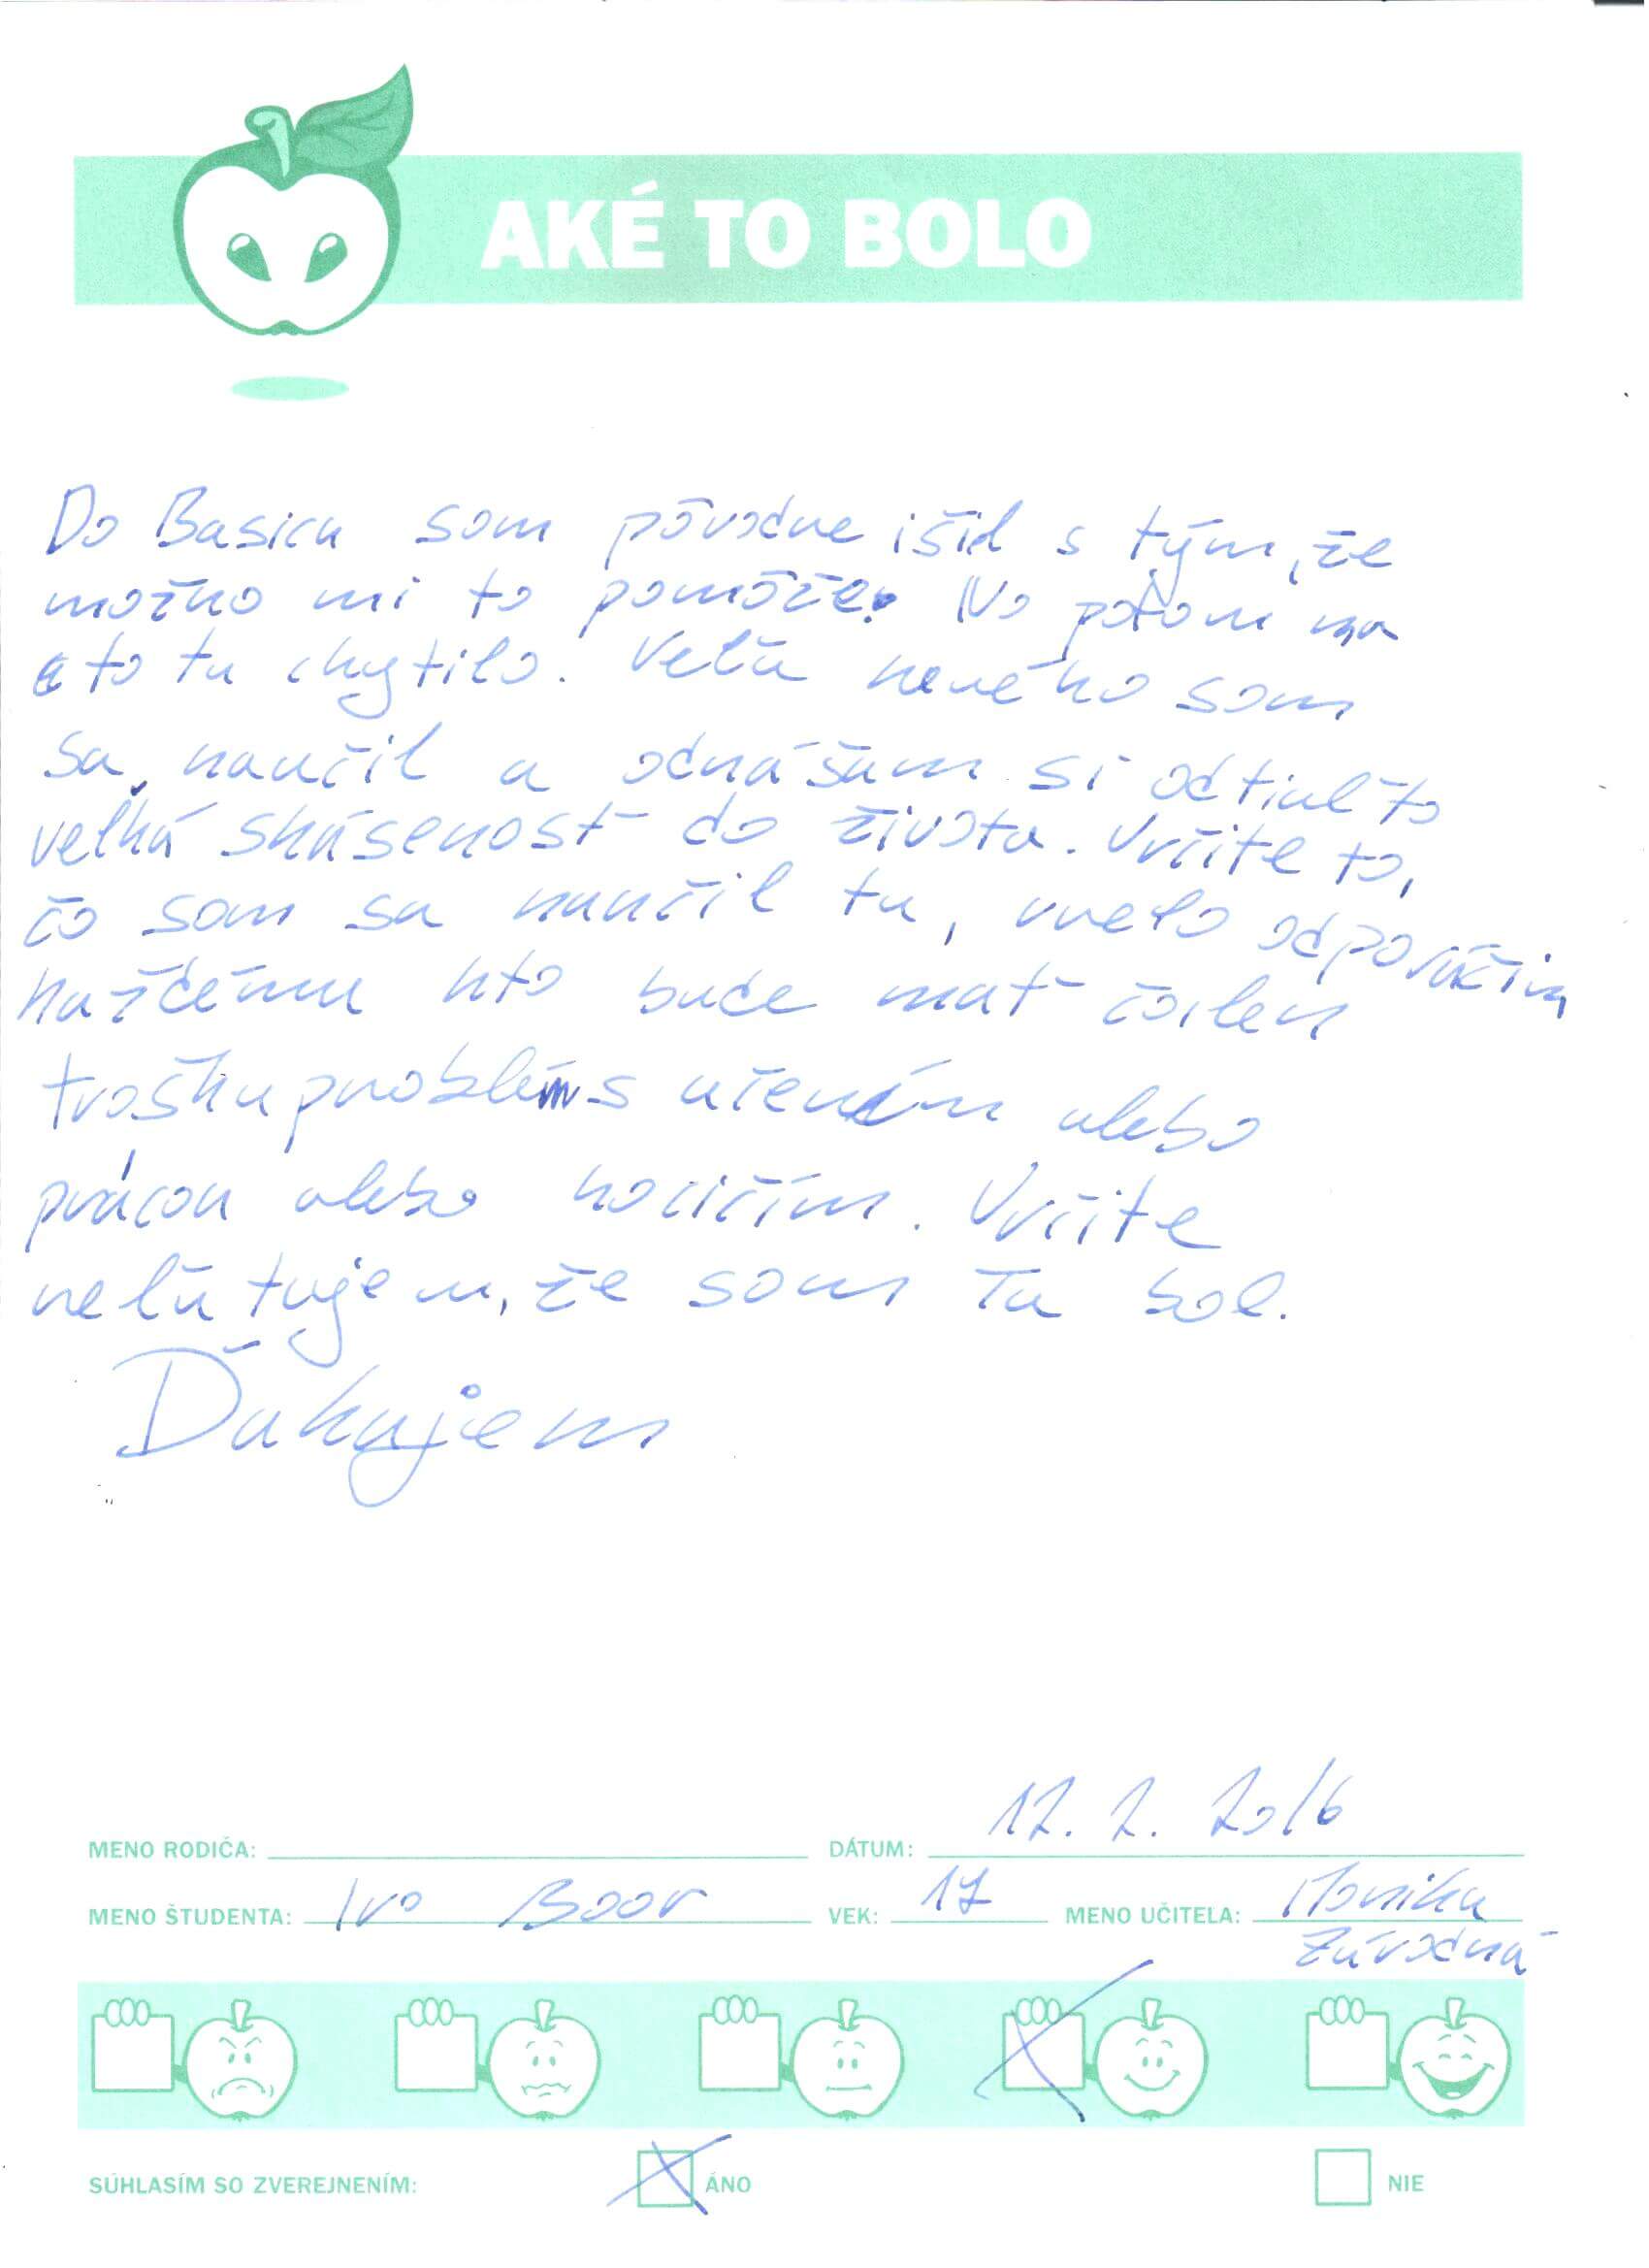 AKÉ TO BOLO
Do Basicu som pôvodne išiel s tým, že
možno mi to pomôže. No potom ma
to tu chytilo. Veľa nového som
sa naučil a odnášam si odtiaľto
veľkú skúsenosť do života. Určite to,
čo som sa naučil tu, vrelo odporúčam
každému kto bude mať čo i len
trošku problém s učením alebo
prácou alebo hocičím. Určite
neľutujem, že som tu bol.
Ďakujem
MENO RODIČA: DÁTUM: 12. 2. 2016
MENO ŠTUDENTA: Ivo Boor VEK: 17 MENO UČITELA: Monika
Závodná
SÚHLASÍM SO ZVEREJNENÍM: ÁNO NIE